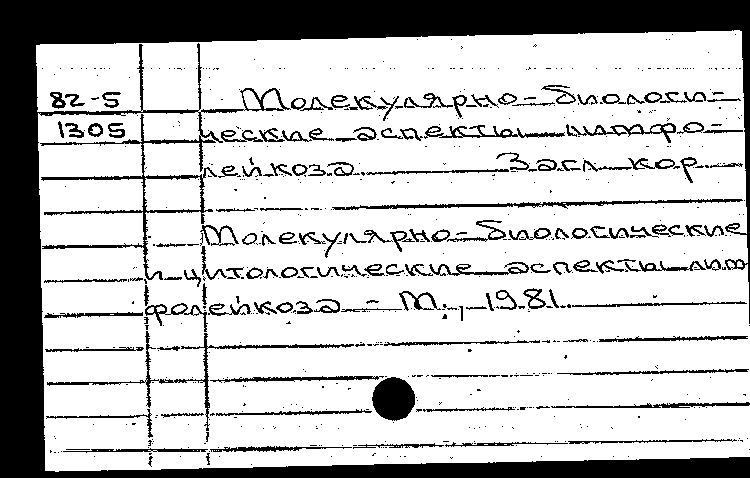 82-5 Молекулярно-биологи-
1305 ческие аспекты лимфо-
лейкоза Загл кор
Молекулярно-биологические
и цитологические аспекты лим
фолейкоза - М., 1981